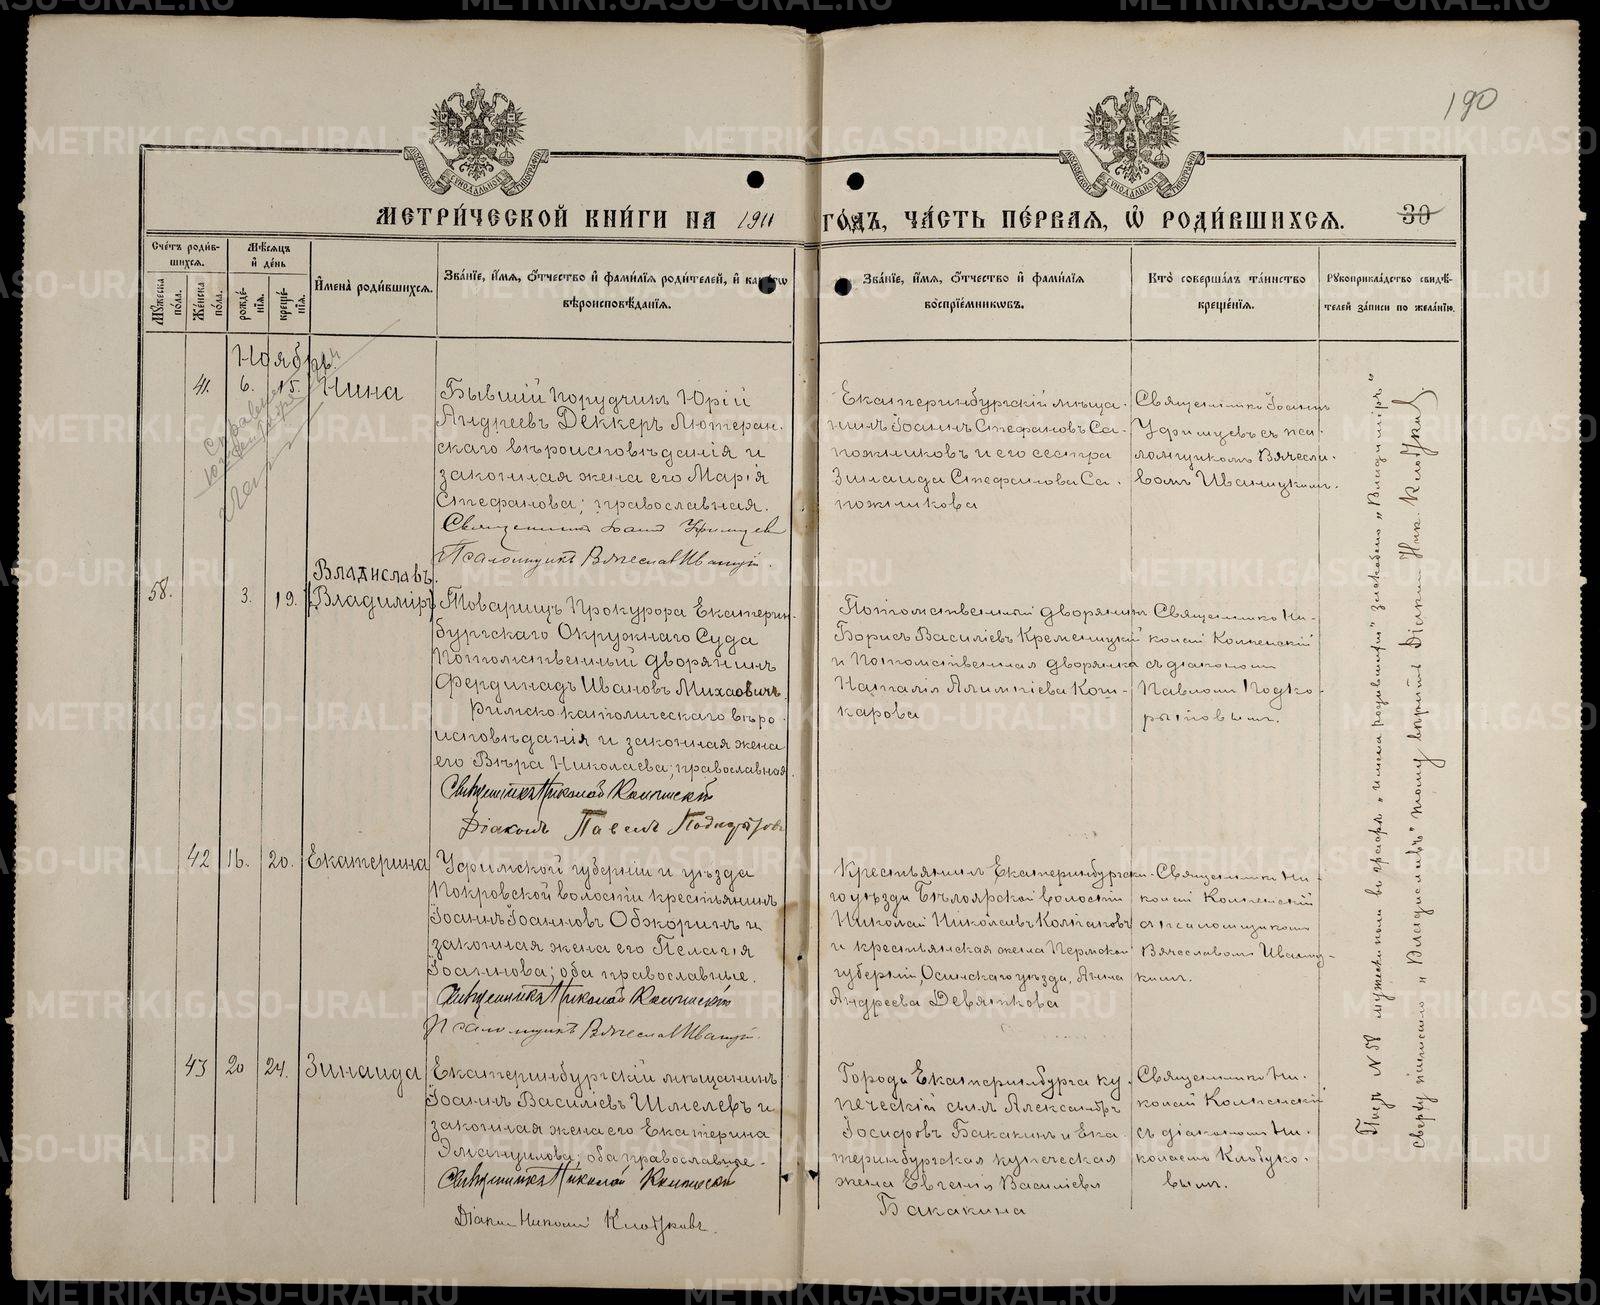 190
МОСКОВСКОЙ СѴНОДАЛЬНОЙ ТИПОГРАФІИ
МОСКОВСКОЙ СѴНОДАЛЬНОЙ ТИПОГРАФІИ
МЕТРИ́ЧЕСКОЙ КНИ́ГИ НА 1911 ГО́ДЪ, ЧА́СТЬ ПЕ́РВАЯ, Ѡ РОДИ́ВШИХСЯ.
30
Сче́тъ роди́в-
шихся.
Мꙋ́жеска по́ла.
Же́нска по́ла.
Мѣ́сяцъ
и҆ де́нь
рожде́-
нїя.
креще́-
нїя.
И҆мена̀ роди́вшихся.
Зва́нїе, и҆́мя, ѻ҆́тчество и҆ фами́лїя роди́телей, и҆ како́гѡ
вѣроисповѣ́данїя.
Зва́нїе, и҆́мя, ѻ҆́тчество и҆ фами́лїя
воспрїе́мникѡвъ.
Кто̀ соверша́лъ та́инство
креще́нїя.
Рꙋкоприкла́дство свидѣ́-
телей за́писи по жела́нїю.
Ноябрь.
41.
6.
15.
Нина
Бывшій порудчикъ Юрій
Андреевъ Деккеръ Лютеран-
скаго вѣроисповѣданія и
законная жена его Марія
Стефанова; православная.
Священникъ Іоаннъ
Псаломщикъ Вячеславъ Иваницкій.
Екатеринбургскій мѣща-
нинъ Іоаннъ Стефановъ Са-
пожниковъ и его сестра
Зинаида Стефанова Са-
пожникова
Священникъ Іоаннъ
съ пса-
ломщикомъ Вячесла-
вомъ Иваницкимъ.
58.
3.
19.
Владиславъ.
[Владиміръ]
Товарищъ Прокурора Екатерин-
бургскаго Окружнаго Суда
Потомственный дворянинъ
Фердинадъ Ивановъ Михаовичъ,
Римско-католическаго вѣро-
исповѣданія и законная жена
его Вѣра Николаева; православная.
Священникъ Николай
Діаконъ Павелъ
Потомственный дворянинъ
Борисъ Василіевъ Кременицкій
и Потомственная дворянка
Наталія Алимпіева Кош-
карова
Священникъ Ни-
колай
съ діакономъ
Павломъ Подко-
рытовымъ.
42
16.
20.
Екатерина
Уфимской губерніи и уѣзда
Покровской волости крестьянинъ
Іоаннъ Іоанновъ Обжоринъ и
законная жена его Пелагія
Іоаннова; оба православные.
Священникъ Николай
Псаломщикъ Вячеславъ Иваницкій.
Крестьянинъ Екатеринбургска-
го уѣзда Бѣлоярской волости
Николай Николаевъ Колпаковъ
и крестьянская жена Пермской
губерніи, Осинскаго уѣзда, Анна
Андреева Девяткова
Священникъ Ни-
колай
съ псаломщикомъ
Вячеславомъ Иваниц-
кимъ.
43
20
24.
Зинаида
Екатеринбургскій мѣщанинъ
Іоаннъ Василіевъ Шмелевъ и
законная жена его Екатерина
Эмануилова; оба православные.
Священникъ Николай
Діаконъ Николай Клобуковъ.
Города Екатеринбурга ку-
печескій сынъ Александръ
Іосифовъ Бакакинъ и Ека-
теринбургская купеческая
жена Евгенія Василіева
Бакакина
Священникъ Ни-
колай
съ діакономъ Ни-
колаемъ Клобуко-
вымъ.
Подъ № 58 мужескъ полъ въ графѣ „имена родившихся" зачеркнуто „Владиміръ"
сверху написано „Владиславъ" тому вѣрить Діаконъ Ник. Клобуковъ.
METRIKI.GASO-URAL.RU